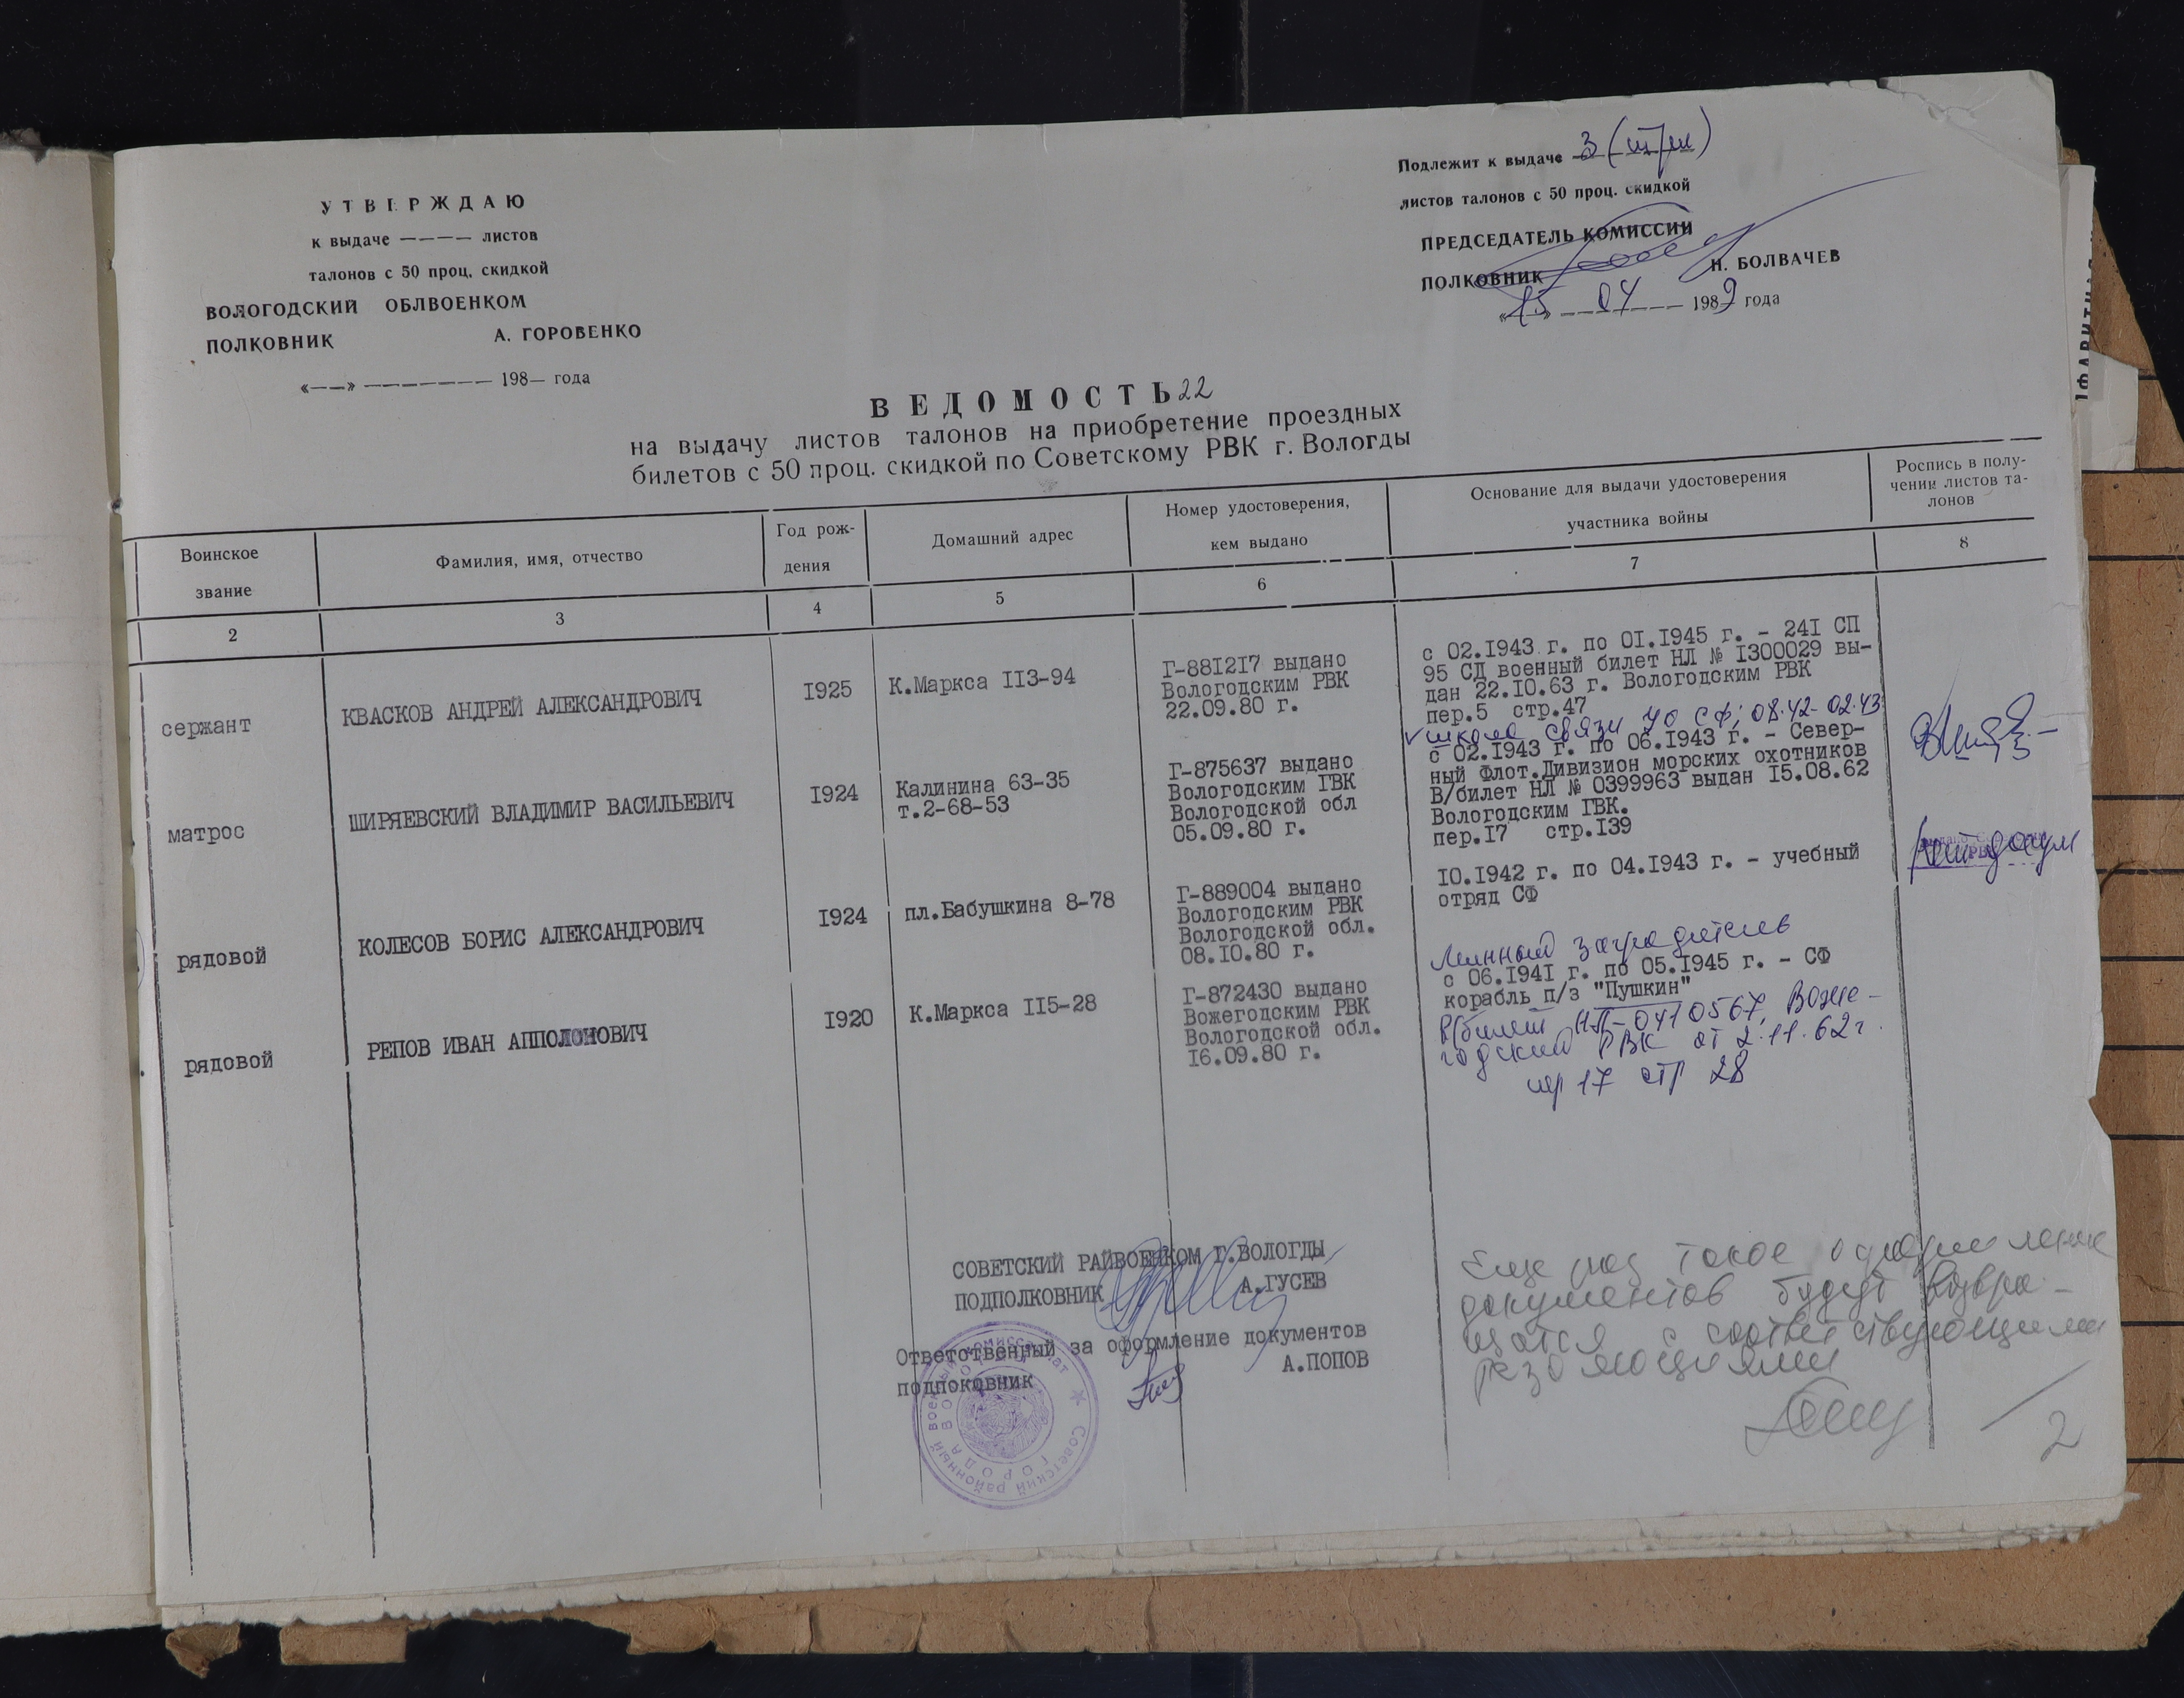 УТВЕРЖДАЮ
к выдаче ———— листов
талонов с 50 проц. скидкой
ВОЛОГОДСКИЙ ОБЛВОЕНКОМ
ПОЛКОВНИК А. ГОРОВЕНКО
«——» ——————— 198— года
Подлежит к выдаче 3 (три)
листов талонов с 50 проц. скидкой
ПРЕДСЕДАТЕЛЬ КОМИССИИ
ПОЛКОВНИК Н. БОЛВАЧЕВ
«15» 04 1989 года
ВЕДОМОСТЬ 22
на выдачу листов талонов на приобретение проездных
билетов с 50 проц. скидкой по Советскому РВК г. Вологды
Воинское
звание
Фамилия, имя, отчество
Год рож-
дения
Домашний адрес
Номер удостоверения,
кем выдано
Основание для выдачи удостоверения
участника войны
Роспись в полу-
чении листов та-
лонов
2 3 4 5 6 7 8
сержант
КВАСКОВ АНДРЕЙ АЛЕКСАНДРОВИЧ
1925
К.Маркса 113-94
Г-881217 выдано
Вологодским РВК
22.09.80 г.
с 02.1943 г. по 01.1945 г. - 241 СП
95 СД военный билет НЛ № 1300029 вы-
дан 22.10.63 г. Вологодским РВК
пер.5 стр.47
матрос
ШИРЯЕВСКИЙ ВЛАДИМИР ВАСИЛЬЕВИЧ
1924
Калинина 63-35
т.2-68-53
Г-875637 выдано
Вологодским ГВК
Вологодской обл
05.09.80 г.
школа связи УО СФ; 08.42-02.43
с 02.1943 г. по 06.1943 г. - Север-
ный Флот.Дивизион морских охотников
В/билет НЛ № 0399963 выдан 15.08.62
Вологодским ГВК.
пер.17 стр.139
рядовой
КОЛЕСОВ БОРИС АЛЕКСАНДРОВИЧ
1924
пл.Бабушкина 8-78
Г-889004 выдано
Вологодским РВК
Вологодской обл.
08.10.80 г.
10.1942 г. по 04.1943 г. - учебный
отряд СФ
нет докум
рядовой
РЕПОВ ИВАН АППОЛОНОВИЧ
1920
К.Маркса 115-28
Г-872430 выдано
Вожегодским РВК
Вологодской обл.
16.09.80 г.
Минный заградитель
с 06.1941 г. по 05.1945 г. - СФ
корабль п/з "Пушкин"
В/билет НЛ-0410567, Воже-
годский РВК от 2.11.62 г.
пер 17 стр 28
СОВЕТСКИЙ РАЙВОЕНКОМ Г.ВОЛОГДЫ
ПОДПОЛКОВНИК А.ГУСЕВ
Ответственный за оформление документов
подпоковник А.ПОПОВ
Советский районный военный комиссариат
ГОРОДА ВОЛОГДА
Еще раз такое оформление
документов будут возвра-
щатся с соответствующими
резолюциями
2